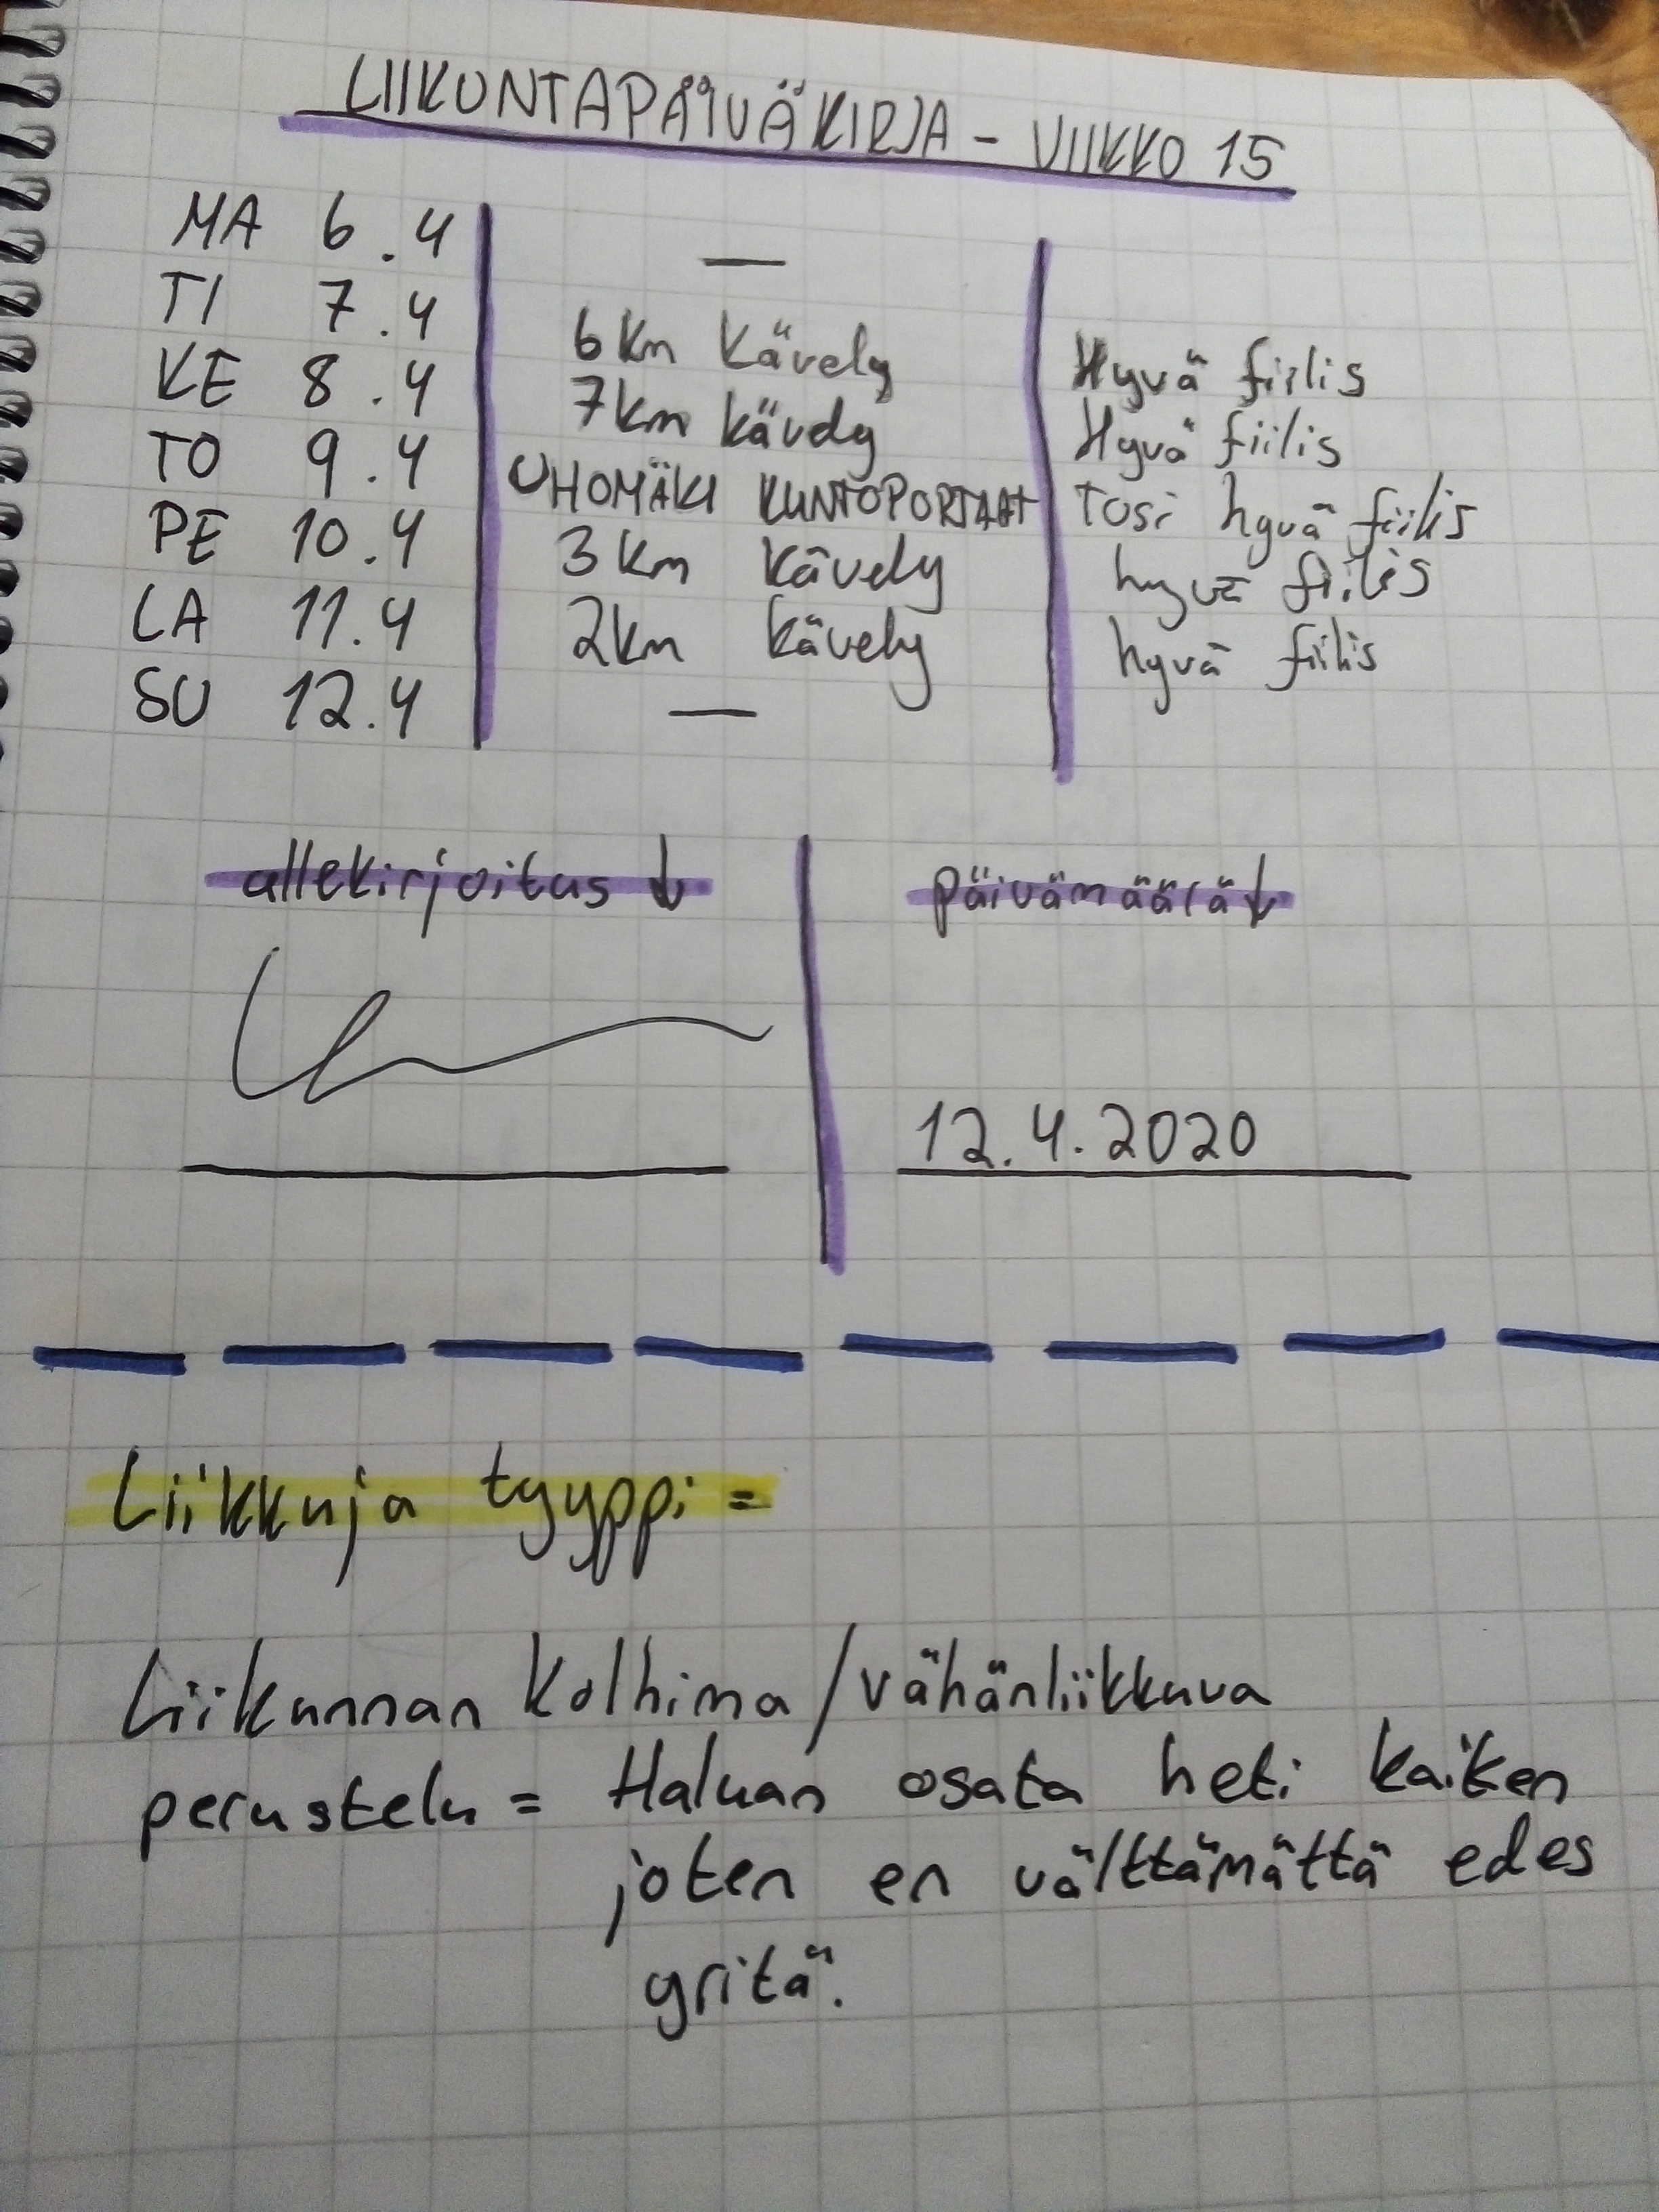 LIIKUNTAPÄIVÄKIRJA - VIIKKO 15
MA 6.4 —
TI 7.4 6km kävely Hyvä fiilis
KE 8.4 7km kävely Hyvä fiilis
TO 9.4 UHOMÄKI KUNTOPORTAAT Tosi hyvä fiilis
PE 10.4 3km kävely hyvä fiilis
LA 11.4 2km kävely hyvä fiilis
SU 12.4 —
allekirjoitus ↓ päivämäärä ↓
12.4.2020
Liikkuja tyyppi =
Liikunnan kolhima/vähänliikkuva
perustelu = Haluan osata heti kaiken
joten en välttämättä edes
yritä.